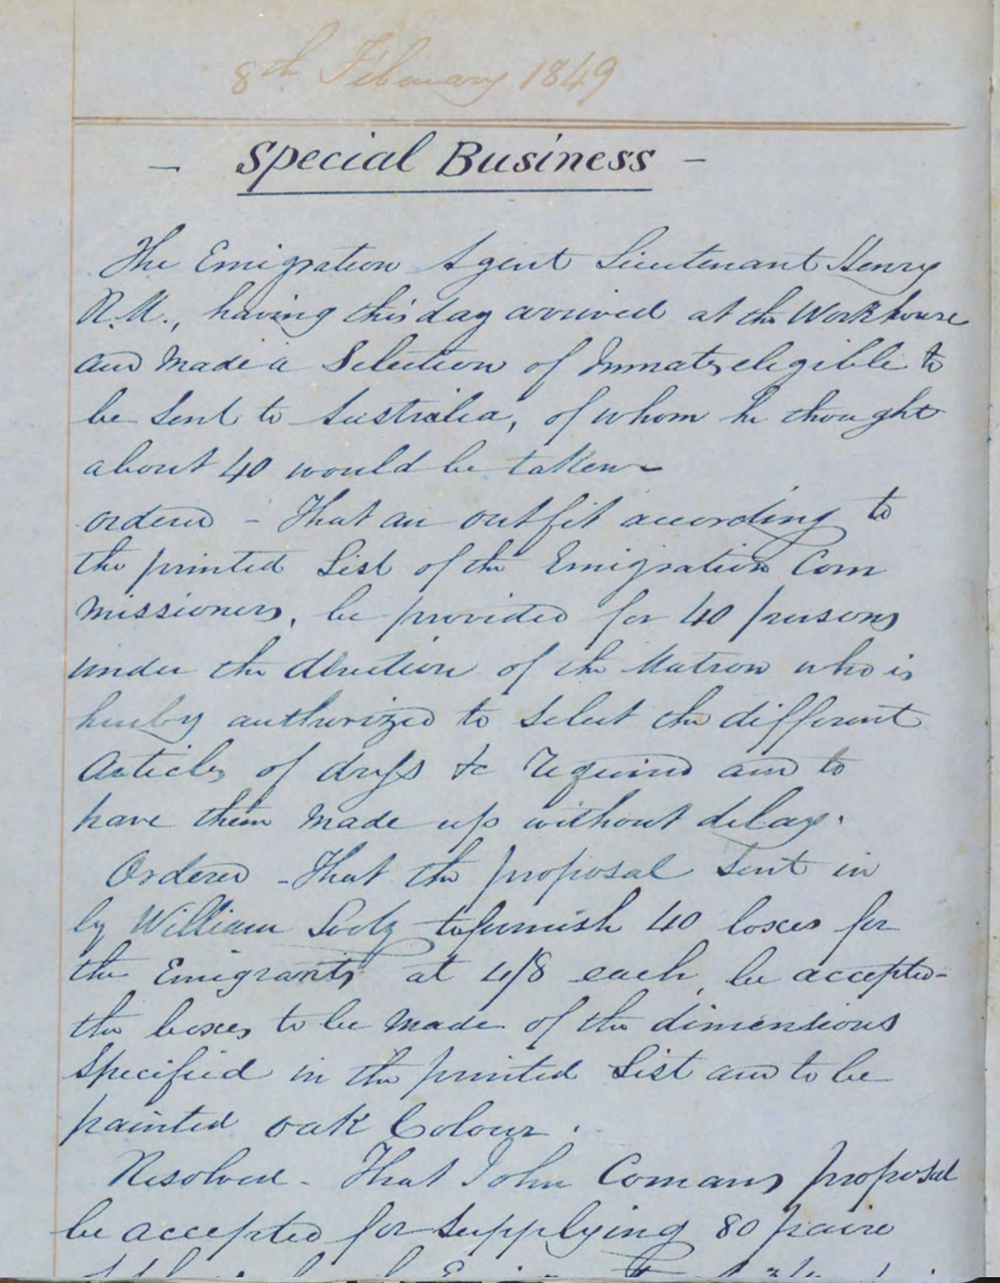 8th February 1849
- Special Business -
The Emigration Agent Lieutenant Henry
R.N., having this day arrived at the Workhouse
and Made a Selection of Inmates eligible to
be Sent to Australia, of whom he thought
about 40 would be taken
Ordered - That an outfit according to
the printed List of the Emigration Com
missioners, be provided for 40 persons
under the direction of the Matron who is
hereby authorized to Select the different
Articles of dress &c required and to
have them Made up without delay.
Ordered - That the proposal Sent in
by William to furnish 40 boxes for
the Emigrants at 4/8 each, be accepted -
the boxes to be Made of the dimensions
Specified in the printed List and to be
painted oak Colour.
Resolved - That John Comans proposal
be accepted for Supplying 80 pairs